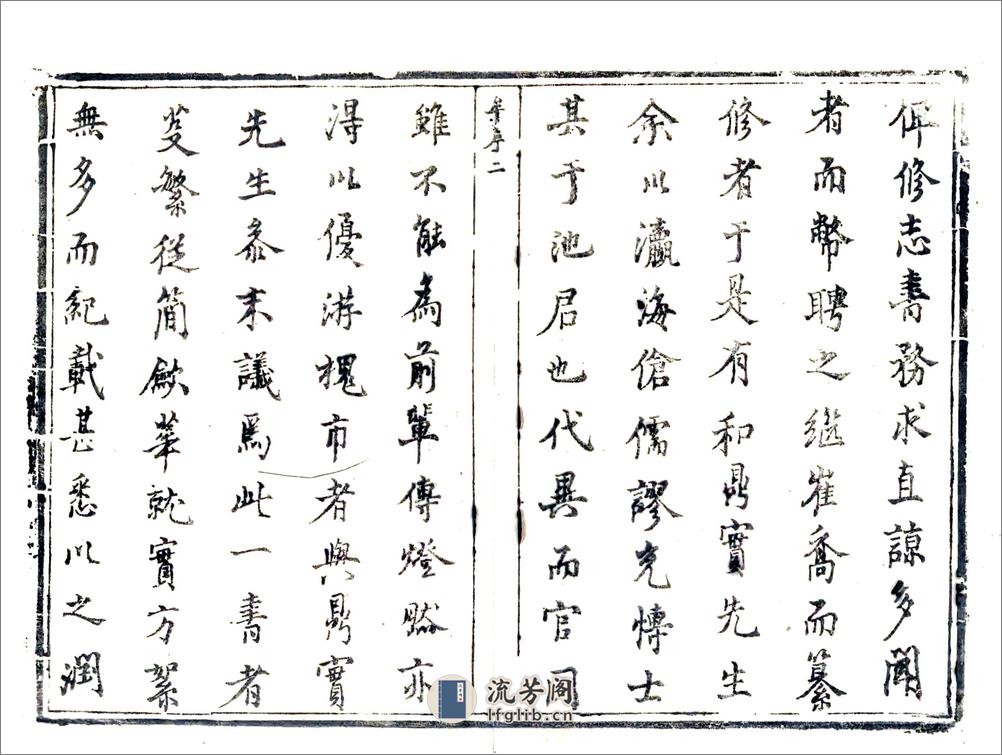 俾修志書務求直諒多聞
者而幣聘之繼崔喬而纂
修者于是有和鼎實先生
余以瀛海傖儒謬充博士
其于池君也代異而官同
牟序二
雖不能為前輩傳燈然亦
得以優游槐市者與鼎實
先生叅末議焉此一書者
芟繁從簡歛華就實方絜
無多而紀載甚悉以之潤
流芳阁
lfglib.cn